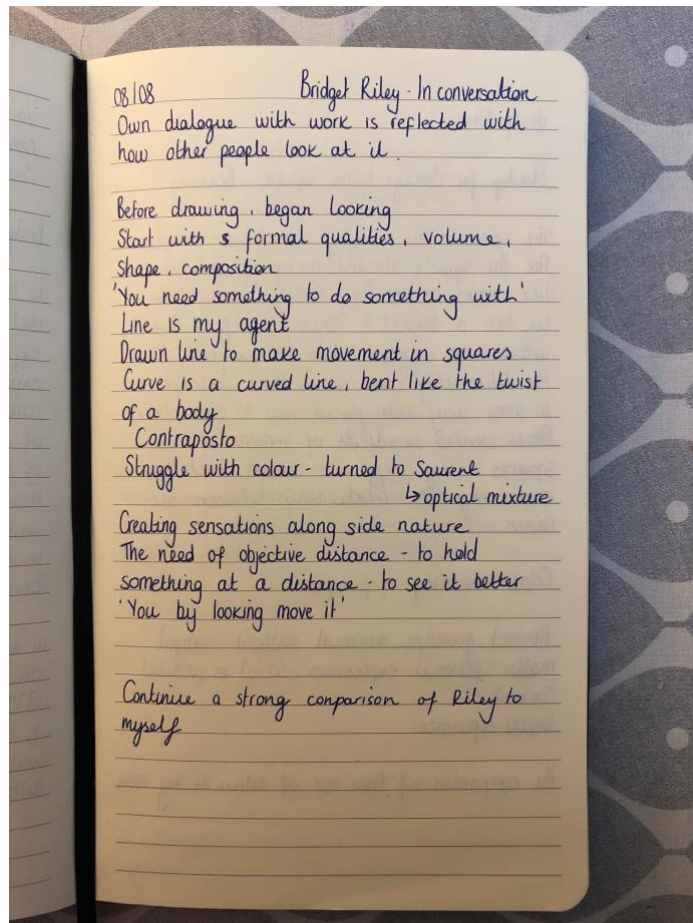 08/08 Bridget Riley - In conversation
Own dialogue with work is reflected with
how other people look at it.
Before drawing, began looking
Start with s formal qualities, volume,
shape, composition
'You need something to do something with'
Line is my agent
Drawn line to make movement in squares
Curve is a curved line, bent like the twist
of a body
Contraposto
Struggle with colour - turned to Saurent
↳ optical mixture
Creating sensations along side nature
The need of objective distance - to hold
something at a distance - to see it better
'You by looking move it'
Continue a strong conparison of Riley to
myself